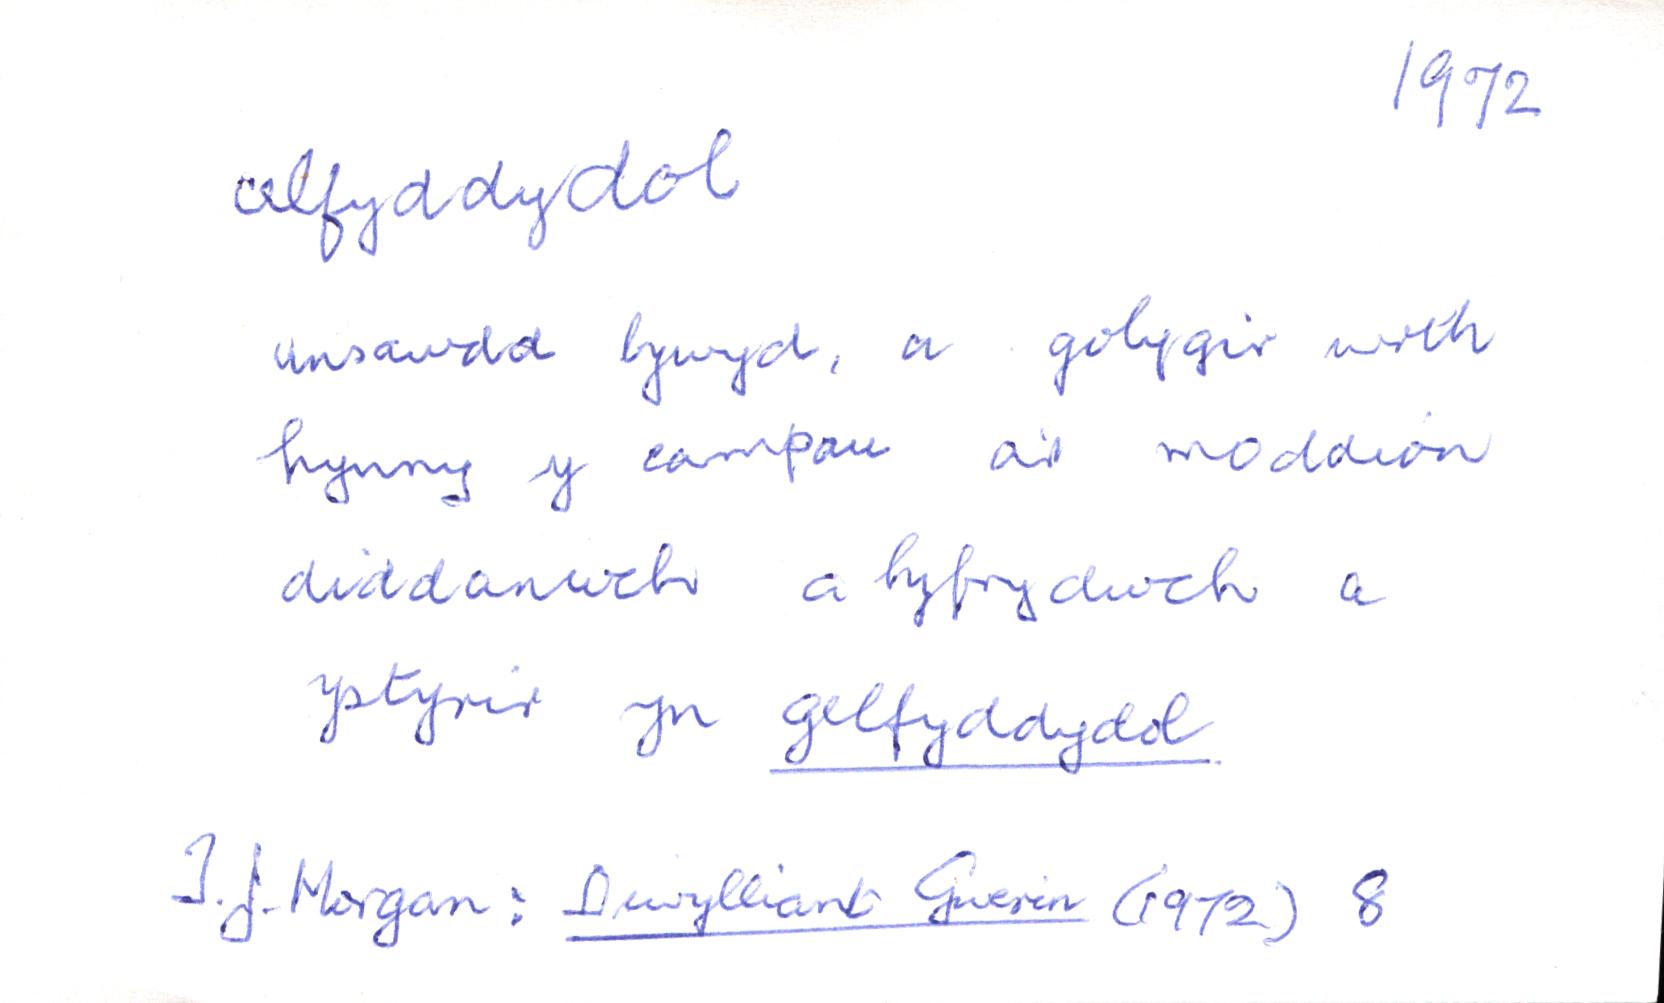 1972
celfyddydol
ansawdd bywyd, a golygir wrth
hynny y campau a'r moddion
diddanwch a hyfrydwch a
ystyrir yn gelfyddydol
T.J. Morgan: Diwylliant Gwerin (1972) 8